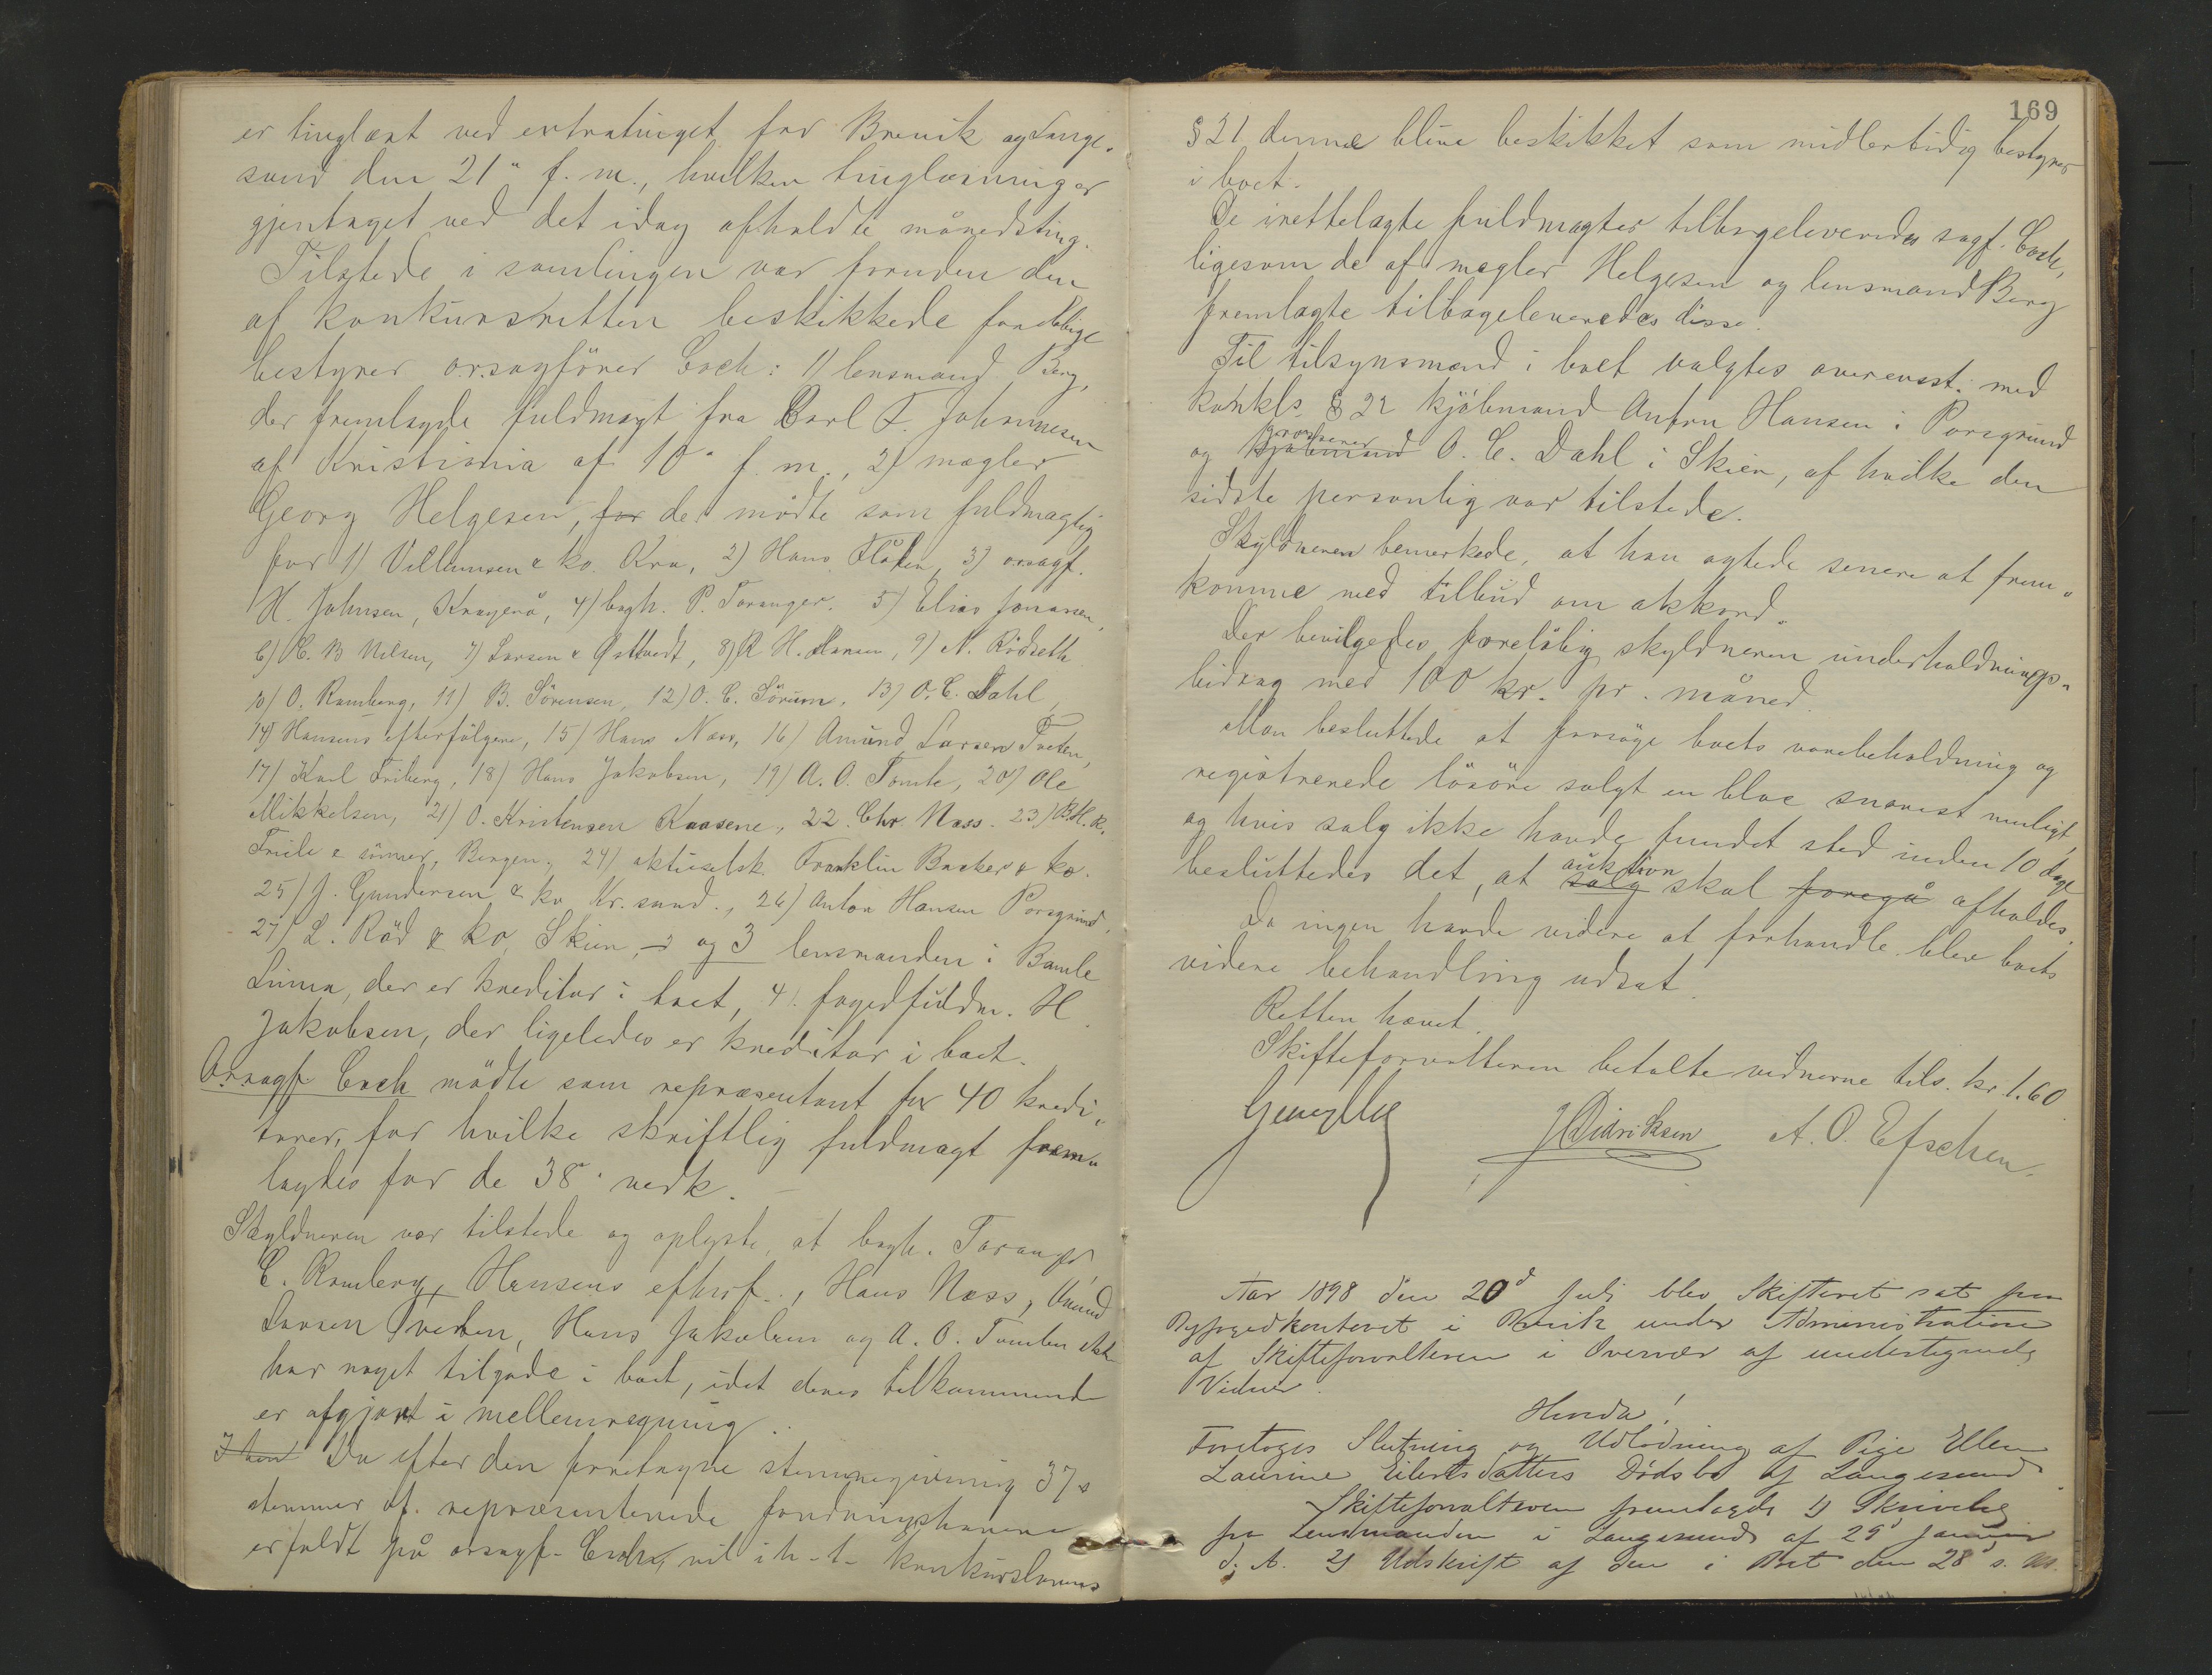 er tinglæst ved extratinget for Brevik og Lange-
sund den 21" f. m., hvilken tinglæsning er
gjentaget ved det idag afholdte månedsting.
Tilstede i samlingen var foruden den
af konkursretten beskikkede foreløbige
bestyrer orsagförer Coch: 1) lensmand Berg,
der fremlagde fuldmagt fra Carl F. Johannesen
af Kristiania af 10" f. m., 2) mægler
Georg Helgesen, for der mödte som fuldmægtig
for 1) Villumsen & ko. Kra, 2) Hans Flåten, 3) orsagf.
H. Johnsen, Kragerö, 4) bagh. P. Taranger, 5) Elias Jonassen,
6) C. B Nilsen, 7) Larsen & Østtvedt, 8) R H. Hansen, 9) N. Rödseth
10) O. Ramberg, 11) B. Sörensen, 12) O. C. Sörum, 13) O. C. Dahl,
14) Hansens efterfölgere, 15) Hans Næss, 16) Amund Larsen Tveten,
17) Karl Friberg, 18) Hans Jakobsen, 19) A. O. Tomte, 20) Ole
Mikkelsen, 21) O. Kristensen Kaasene, 22. Chr. Næss. 23) B. H. R.
Friele & sönner, Bergen, 24) aktieselsk. Franklin Backer & ko.
25) J. Gundersen & ko Kr. sund., 26) Anton Hansen Porsgrund,
27) L. Råd & ko, Skien, og 3 lensmanden i Bamle
Linna, der er kreditor i boet, 4) fogedfuldm. H.
Jakobsen, der ligeledes er kreditor i boet.
Orsagf Coch mödte som repræsentant for 40 kredi-
torer, for hvilke skriftlig fuldmagt frem-
lagdes for de 38 vedk.
Skyldneren var tilstede og oplyste, at bagh. Taranger,
C. Ramberg, Hansens efterf., Hans Næss, Amund
Larsen Tveten, Hans Jakobsen og A. O. Tomten ikke
har noget tilgode i boet, idet deres tilkommende
er afgjort i mellemregning.
I hen Da efter den foretagne stemmegivning 37
stemmer af repræsenterede fordringshavere
er faldt på orsagf. Coch, vil i h. t. konkurslovens
169
§ 21 denne blive beskikket som midlertidig bestyrer
i boet.
De irettelagte fuldmagter tilbageleveredes sagf. Coch,
ligesom de af mægler Helgesen og lensmand Berg
fremlagte tilbageleveredes disse.
Til tilsynsmænd i boet valgtes overensst. med
konkls. § 22 kjöbmand Anton Hansen i Porsgrund
grosserer
og kjöbmand O. C. Dahl i Skien, af hvilke den
sidste personlig var tilstede.
Skyldneren bemerkede, at han agtede senere at frem-
komme med tilbud om akkord.
Der bevilgedes foreløbig skyldneren underholdnings-
bidrag med 100 kr. pr. måned.
Man besluttede at forsöge boets varebeholdning og
registrerede lösöre solgt en bloc snarest muligt,
og hvis salg ikke havde fundet sted inden 10 dage
auktion
besluttedes det, at salg skal foregå afholdes.
Da ingen havde videre at forhandle blev boets
videre behandling udsat.
Retten hævet.
Skifteforvalteren betalte vidnerne tils. kr. 1.60
J Didriksen A. O. Efschen.
Aar 1898 den 20d Juli blev Skifteret sat paa
Byfogedkontoret i Brevik under Administration
af Skifteforvalteren i Overvær af undertegnede
Vidner.
Hvorda!
Foretoges Slutning og Udlodning af Pige Ellen
Laurine Eilertsdatters Dødsbo af Langesund
Skifteforvalteren fremlagde 1) Skrivelse
fra Lensmanden i Langesund af 29d Januar
d. A. 2) Udskrift af den i Boet den 28d s. M.